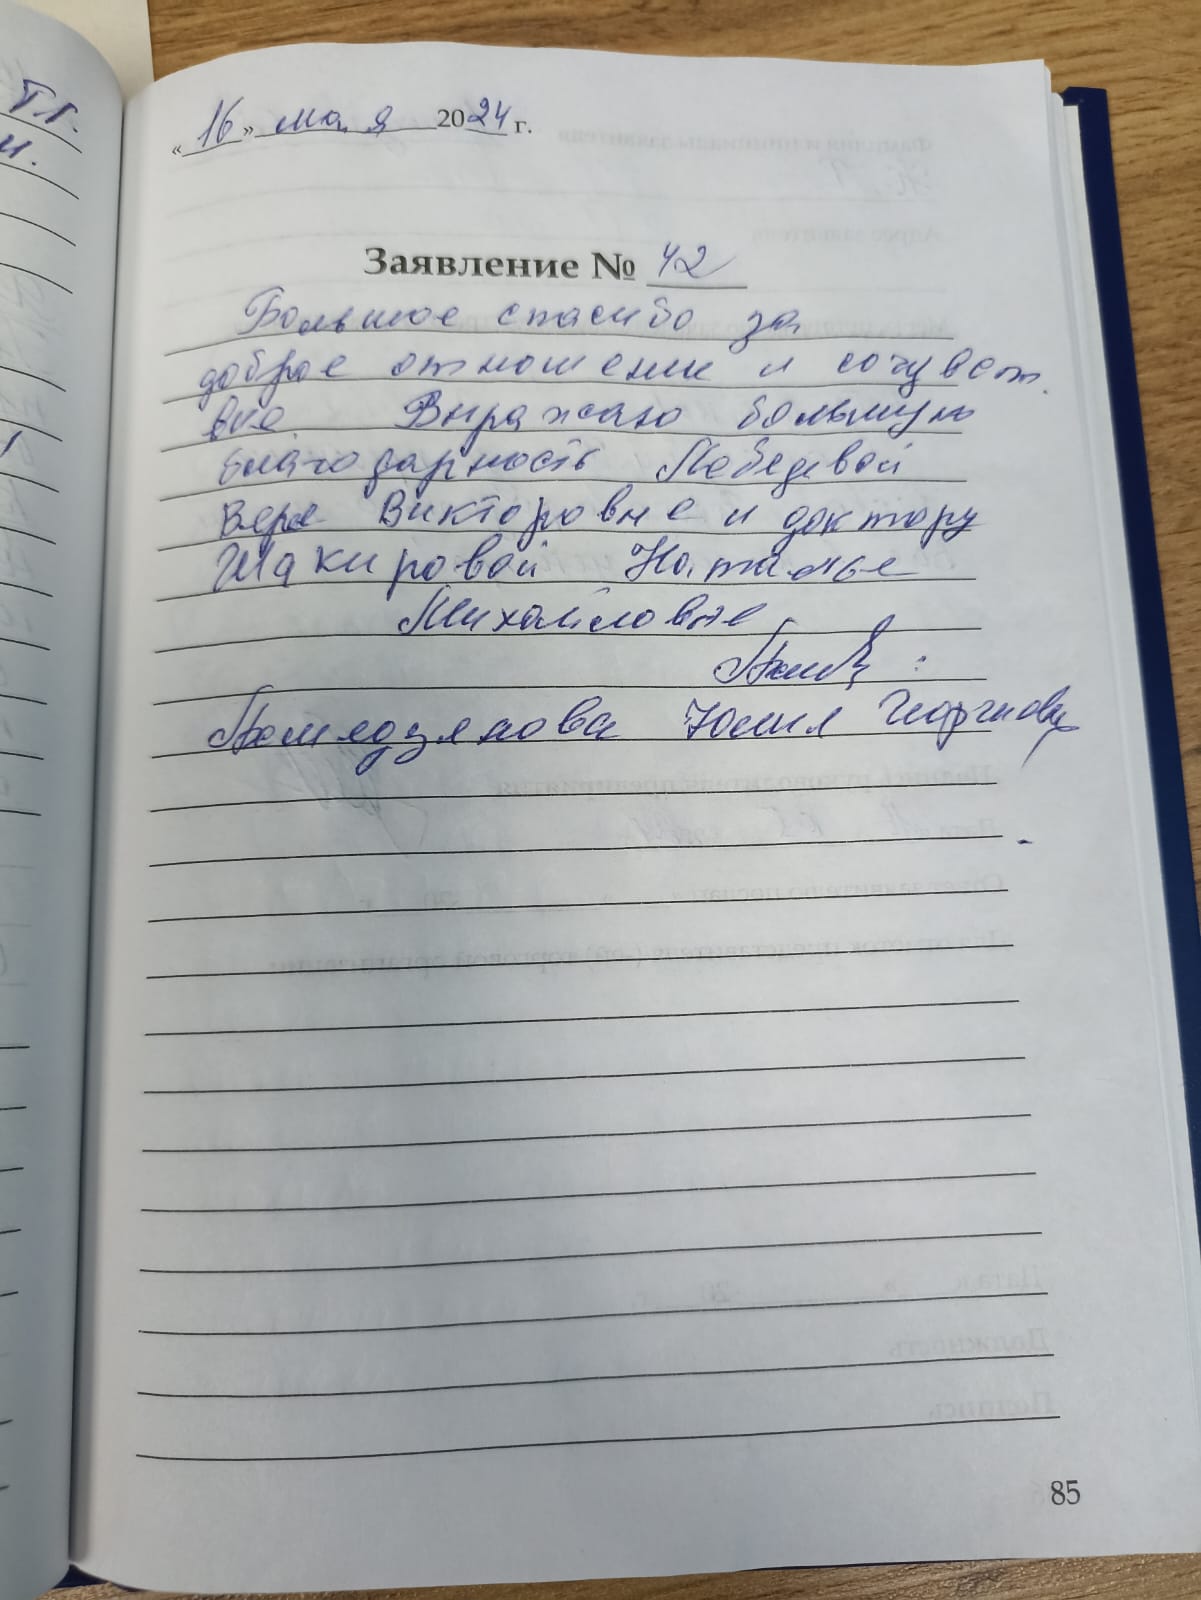 «16» мая 2024 г.
Заявление № 42
Большое спасибо за
доброе отношение и сочувст
вие. Выражаю большую
благодарность Лебедевой
Вере Викторовне и доктору
Шакировой Наталье
Михайловне
Юлия Георгиевна
85